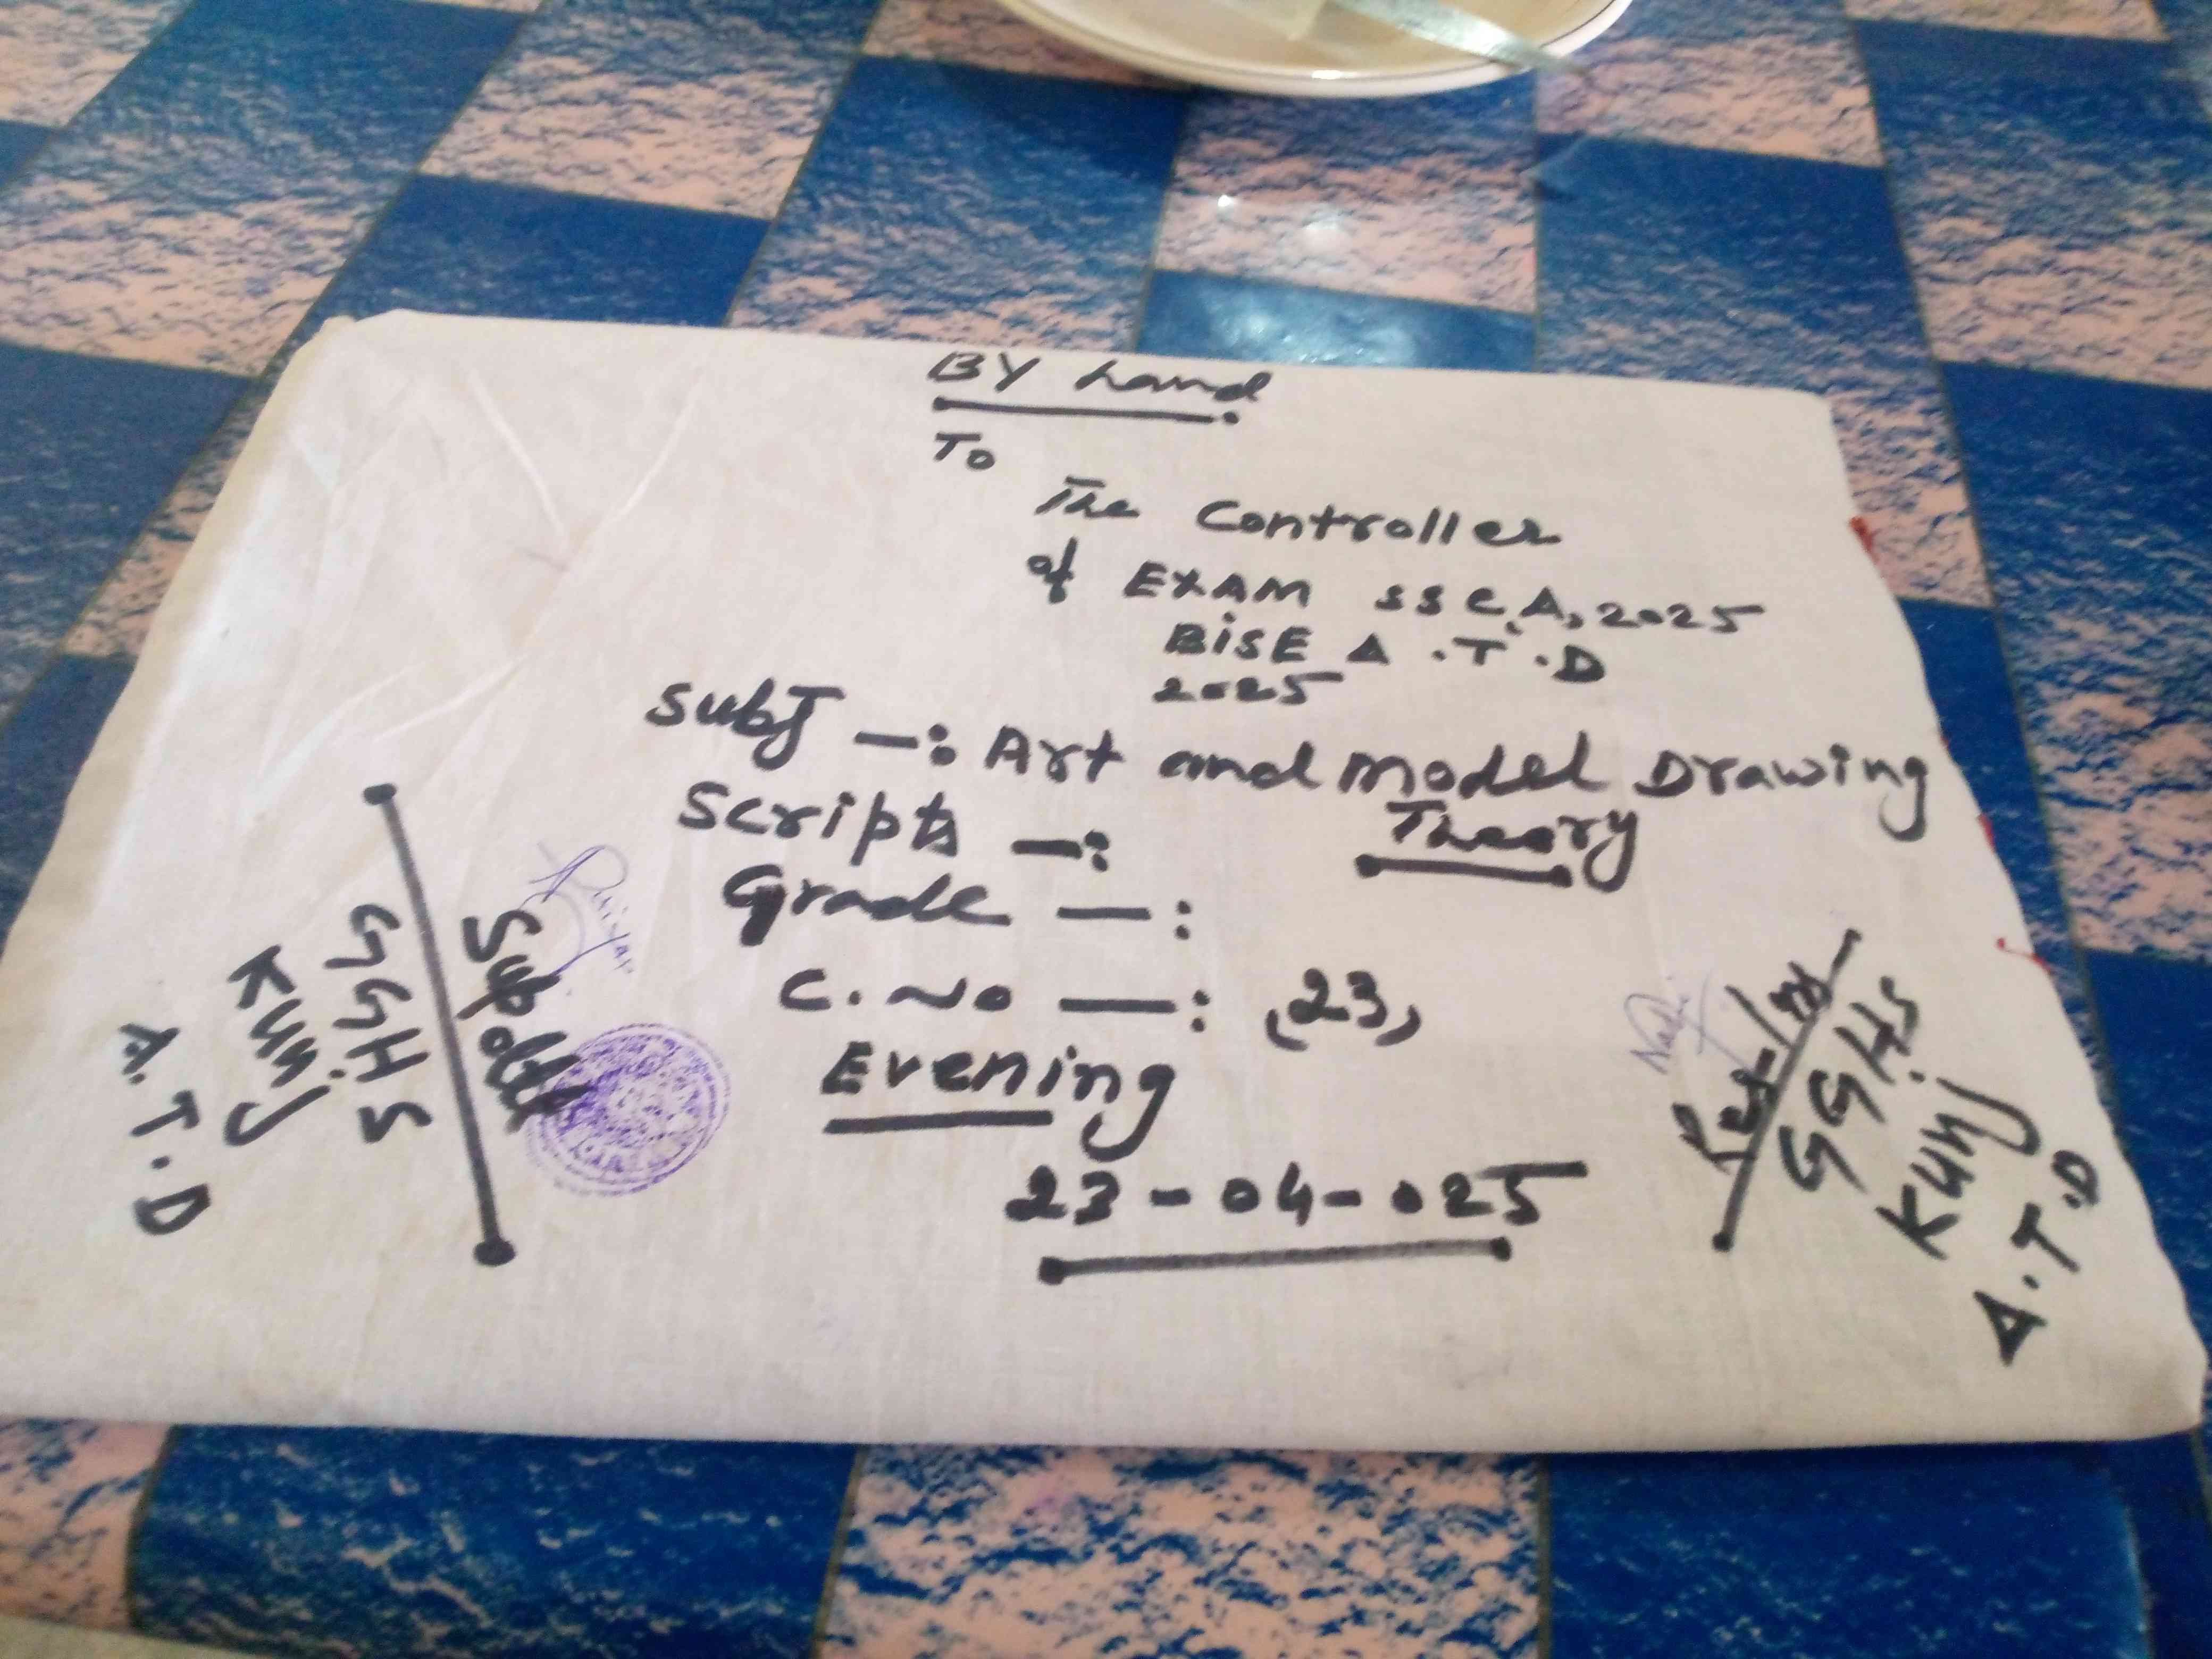 BY hand
To
The Controller
of EXAM SSC.A, 2025
BiSE A.T.D
2025
SubJ —: Art and Model Drawing
Theory
Scripts —:
Grade —:
C.No —: (23)
Evening
23-04-025
GGHS
Kunj
A.T.D
GGHS
Kunj
A.T.D